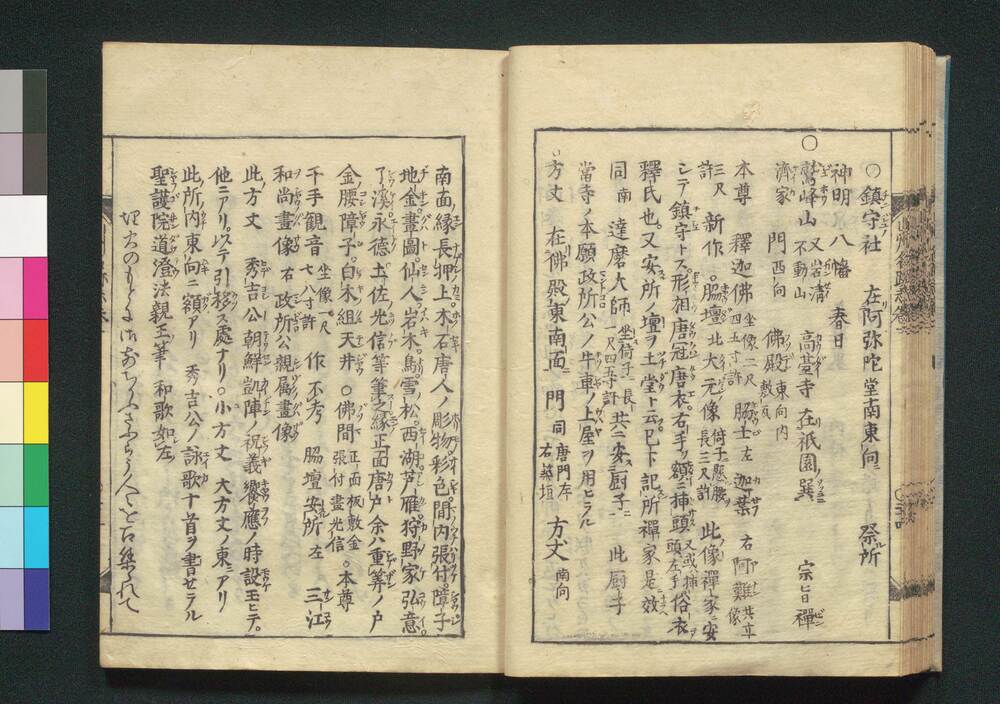 ○鎮守社 在阿弥陀堂南東向 祭所
神明 八幡 春日
○鷲峰山 又岩清不動山 高臺寺 在祇園ノ巽 宗旨禪
濟家 門西向 佛殿東向内敷瓦
本尊 釋迦佛 坐像二尺四五寸許 脇士左 迦葉 右 阿難 共立像
三尺許 新作。脇壇北大元像 倚子懸腰長三尺許 此像禪家ニ安
シテ鎮守トス形相唐冠唐衣。右手ヲ額ニ挿頭 又或ハ挿頭左手 俗衣
釋氏也。又安所ノ壇ヲ土堂ト云已下記所禪家是ニ效
同南 達磨大師 坐倚子ニ長一尺四五寸許 共ニ安厨子ニ 此厨子
當寺ノ本願政所公ノ牛車ノ上屋ヲ用ヒラル
方丈 在佛殿東南面 門 同唐門左右築垣 方丈 南向
南面ノ縁長押上。木石唐人ノ彫物。彩色。間内張付。障子
地金畫圖。仙人。岩木鳥。雪ノ松。西湖芦雁狩野家弘意
了溪永徳土佐光信等筆之縁正面唐戸余八重筭ノ戸
金腰障子。白木組天井 ○佛間 正面板敷金張付畫光信 。本尊
千手觀音 坐像一尺七八寸許 作不考 脇壇安所 左 三江
和尚畫像 右 政所公親属畫像
此方丈 秀吉公朝鮮凱陣ノ祝義饗應ノ時設玉ヒテ。
他ニアリ。ステ引移ス處ナリ。○小方丈 大方丈ノ東ニアリ
此所内東向ニ額アリ 秀吉公ノ詠歌十首ヲ書セラル
聖護院道澄法親王ノ筆 和歌如左